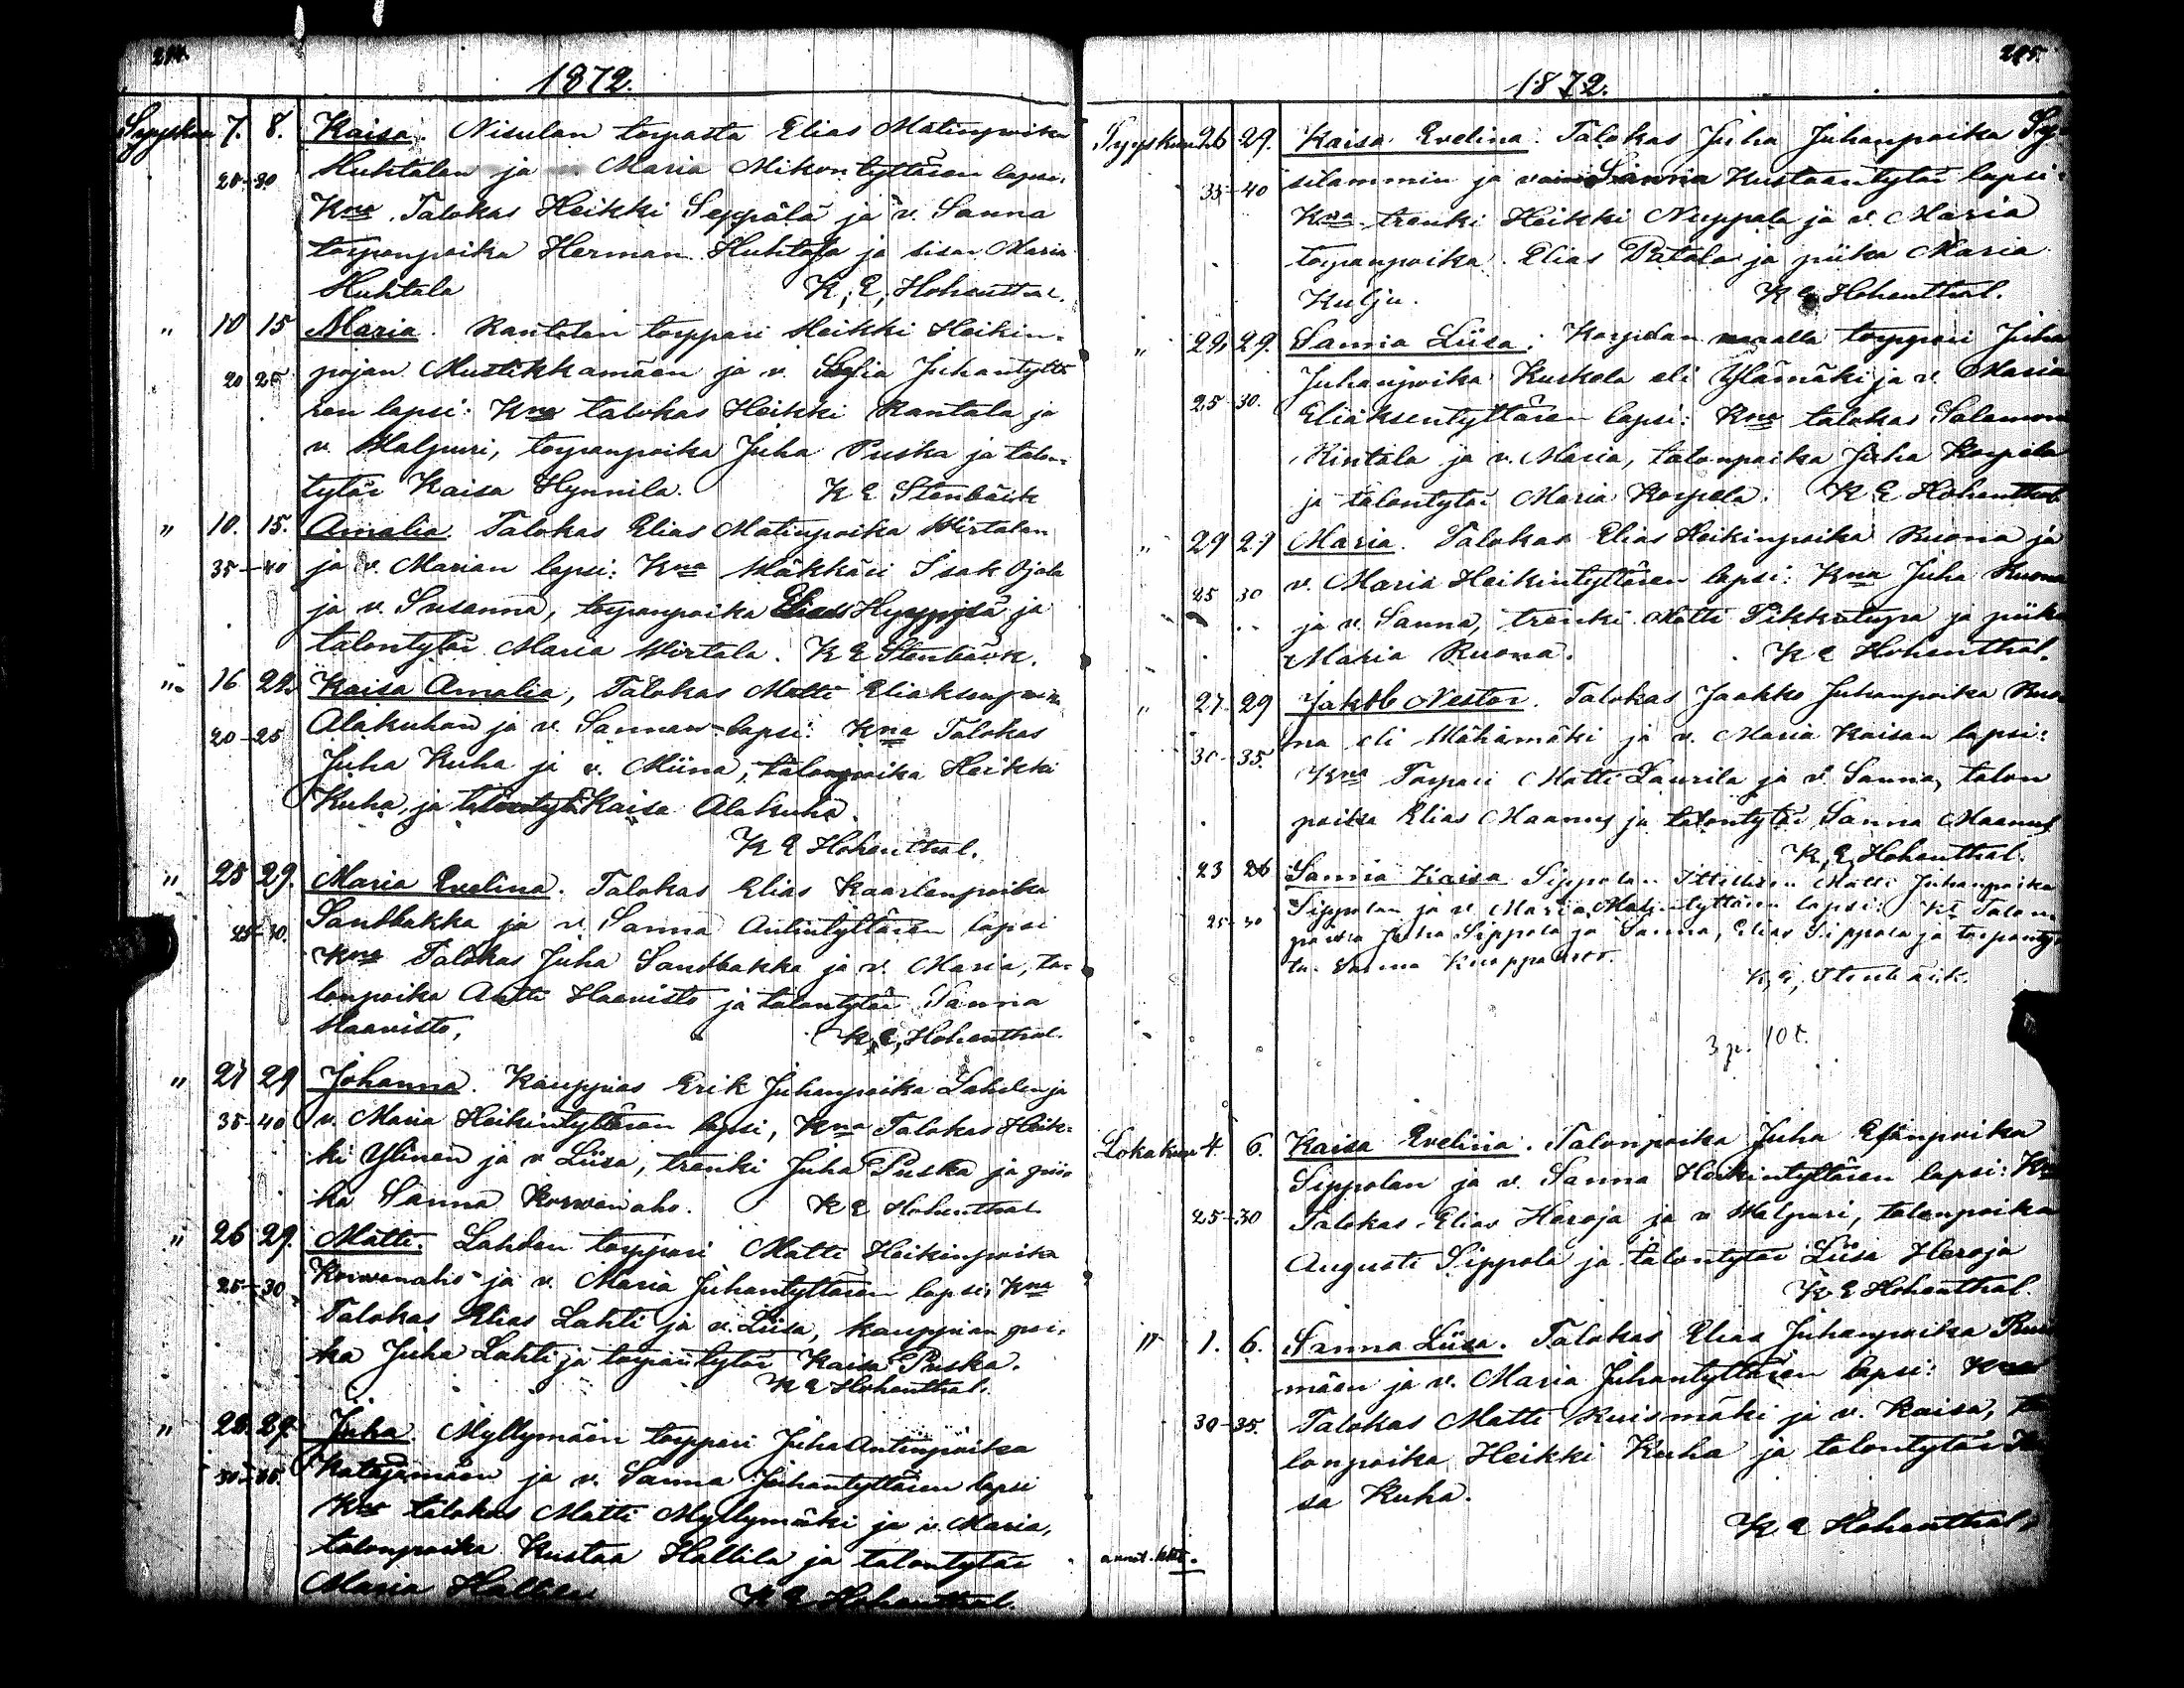 1872.
Syyskuu 7. 8. Kaisa. Nisulan torpasta Elias Matinpoika
20-30 Huhtalan ja Maria Mikontyttären lapsi.
Kna. Talokas Heikki Seppälä ja v. Sanna
torpanpoika Herman Huhtala ja sisar Maria
Huhtala K, E, Hohenthal.
" 10 15 Maria. Rantalan torppari Heikki Heikin-
20 25 pojan Mustikkamäen ja v. Sofia Juhantyttä
ren lapsi: Kna talokas Heikki Rantala ja
v. Walpuri, torpanpoika Juha Puska ja talon-
tytär Kaisa Hynnila. K E Stenbäck
" 10. 15. Amalia. Talokas Elias Matinpoika Wirtalan
35-40 ja v. Marian lapsi: Kna Mäkkäri Isak Ojala
ja v. Susanna, torpanpoika Elias ja
talontytär Maria Wirtala. K E Stenbäck.
" 16 22. Kaisa Amalia, Talokas Matti Eliaksenpoika
20-25 Alakuhan ja v. Sannan lapsi: Kna Talokas
Juha Kuha ja v. Miina, talonpoika Heikki
Kuha ja talontytär Kaisa Alakuha.
K E Hohenthal.
" 25 29. Maria Evelina. Talokas Elias Kaarlenpoika
25-30. Sandbakka ja v. Sanna Antintyttären lapsi
Kna Talokas Juha Sandbakka ja v. Maria, ta-
lonpoika Antti Haavisto ja talontytär Sanna
Haavisto, K, E, Hohenthal.
" 27 29 Johanna. Kauppias Erik Juhanpoika Lahden ja
35-40 v. Maria Heikintyttären lapsi, Kna Talokas Heik-
ki Ylinen ja v Liisa, trenki Juha Puska ja pii-
ka Sanna Korwenaho. K E Hohenthal
" 26 29. Matti. Lahden torppari Matti Heikinpoika
25-30 Korwenaho ja v. Maria Juhantyttären lapsi: Kna
Talokas Elias Lahti ja v. Liisa, kauppian poi-
ka Juha Lahti ja torpantytär Kaisa Puska.
K E Hohenthal.
" 28. 29. Juha Myllymäen torppari Juha Antinpoika
30-35. Katajamäen ja v. Sanna Juhantyttären lapsi
Kna talokas Matti Myllymäki ja v. Maria,
talonpoika Kustaa Hallila ja talontytär
Maria Hallila K E Hohenthal.
295.
1872.
Syyskuu 26 29. Kaisa Evelina. Talokas Juha Juhanpoika Sy-
35-40 silammin ja Sanna Kustaantytär lapsi:
Kna trenki Heikki Nuppola ja v. Maria
torpanpoika Elias Patala ja piika Maria
Kulju. K E Hohenthal.
" 29. 29. Sanna Liisa. Korpelan maalla torppari Juha
Juhanpoika Kuskela eli Ylämäki ja v. Maria
25-30. Eliaksentyttären lapsi: Kna talokas Salamon
Rintala ja v. Maria, talonpoika Juha Korpela
ja talontytär Maria Korpela. K E Hohenthal
" 29 29 Maria. Talokas Elias Heikinpoika Ruona ja
25 30 v. Maria Heikintyttären lapsi: Kna Juha Ruona
ja v. Sanna, trenki Matti Pikkutupa ja piika
Maria Ruona. K E Hohenthal.
" 27 29 Jakob Nestor. Talokas Jaakko Juhanpoika Ruo-
30-35. na eli Mähämäki ja v. Maria Kaisan lapsi:
Kna Torpari Matti Laurila ja v. Sanna, talon
poika Elias Maanus ja talontytär Sanna Maanus
K, E, Hohenthal.
23 26 Sanna Kaisa Sippolan Matti Juhanpoika
25-30 Sippolan ja v. Maria Matintyttären lapsi: Kt Talon
poika Juha Sippola ja Sanna, Elias Sippola ja torpanty-
tä. Sanna
K, E, Stenbäck.
3 p. 10 t.
Lokakuu 4. 6. Kaisa Evelina. Talonpoika Juha Esanpoika
Sippolan ja v. Sanna Heikintyttären lapsi: Kna
25-30 Talokas Elias Heroja ja v Walpuri, talonpoika
Augusti Sippola ja talontytär Liisa Heroja
K E Hohenthal.
" 1. 6. Sanna Liisa. Talokas Elias Juhanpoika
mäen ja v. Maria Juhantyttären lapsi: Kna
30-35. Talokas Matti Ruismäki ja v. Kaisa, ta
lonpoika Heikki Kuha ja talontytär
sa Kuha.
K E Hohenthal.